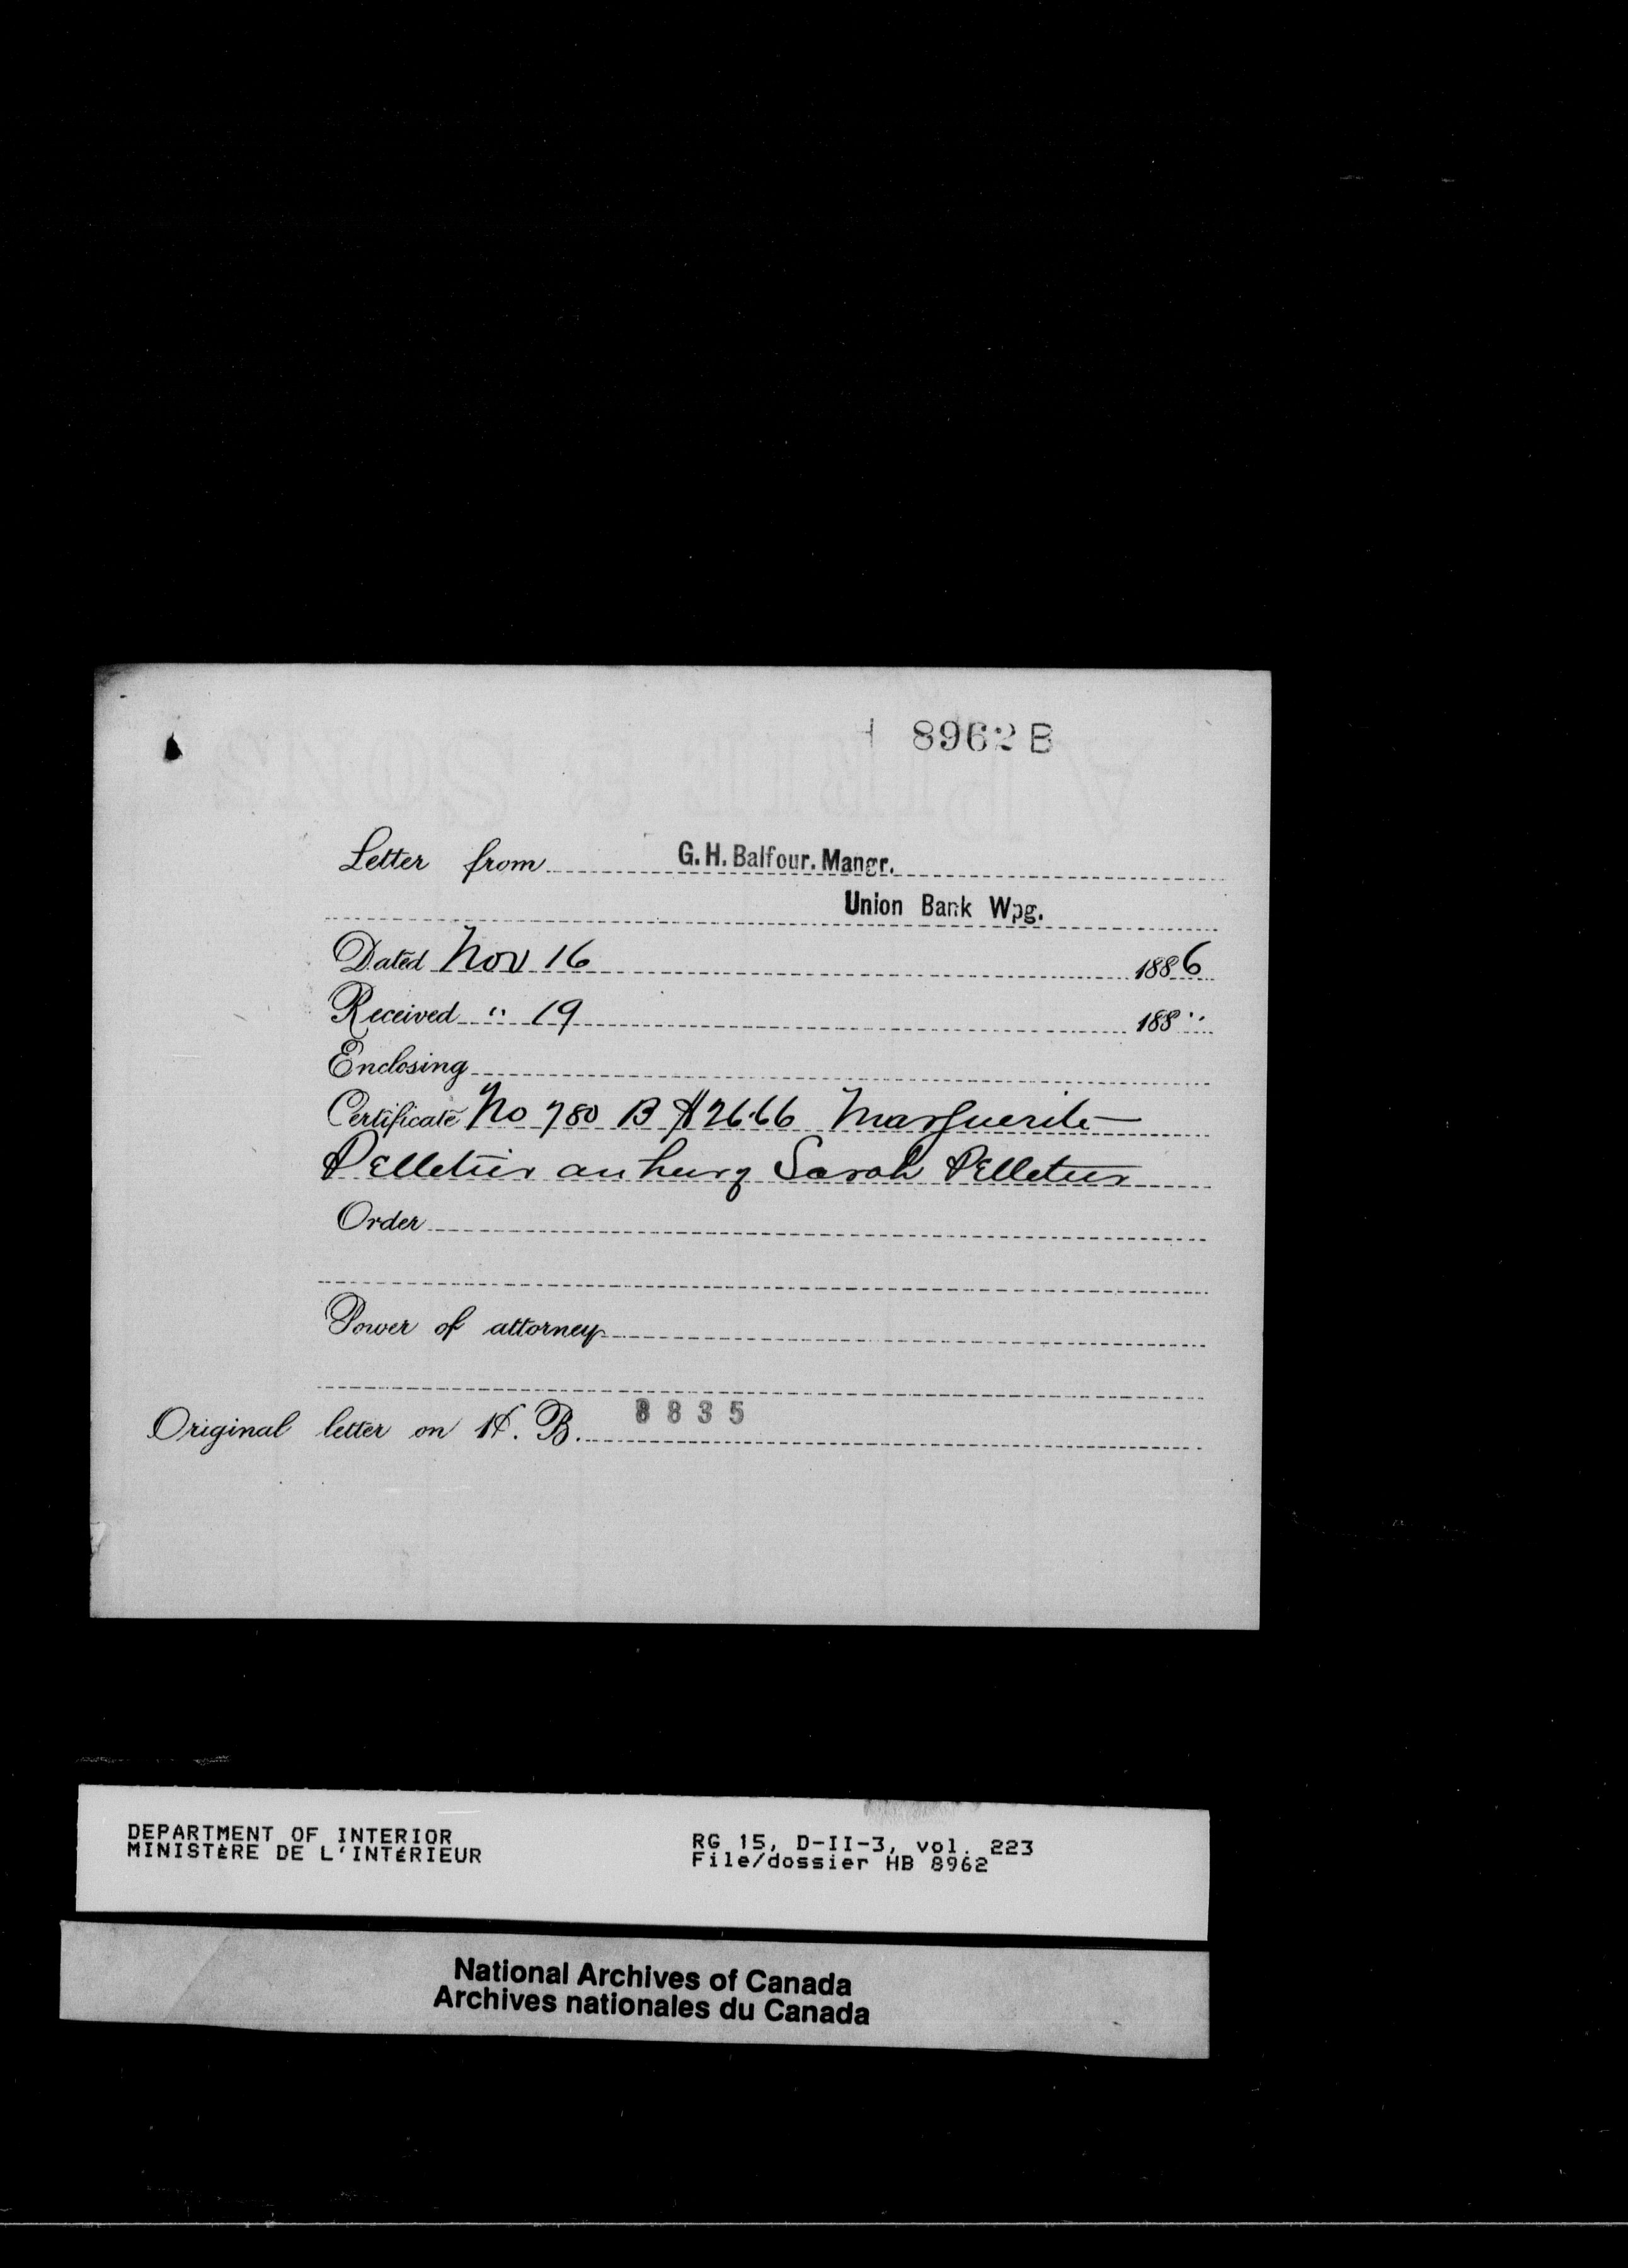 8962 B
Letter from G. H. Balfour. Mangr.
Union Bank Wpg.
Dated Nov 16 1886
Received " 19 188"
Enclosing
Certificate No 780 B $26.66 Marguerite
Pelletier an heir of Sarah Pelletier
Order
Power of attorney
Original letter on H. B. 8835
DEPARTMENT OF INTERIOR
MINISTÈRE DE L'INTÉRIEUR
RG 15, D-II-3, vol. 223
File/dossier HB 8962
National Archives of Canada
Archives nationales du Canada